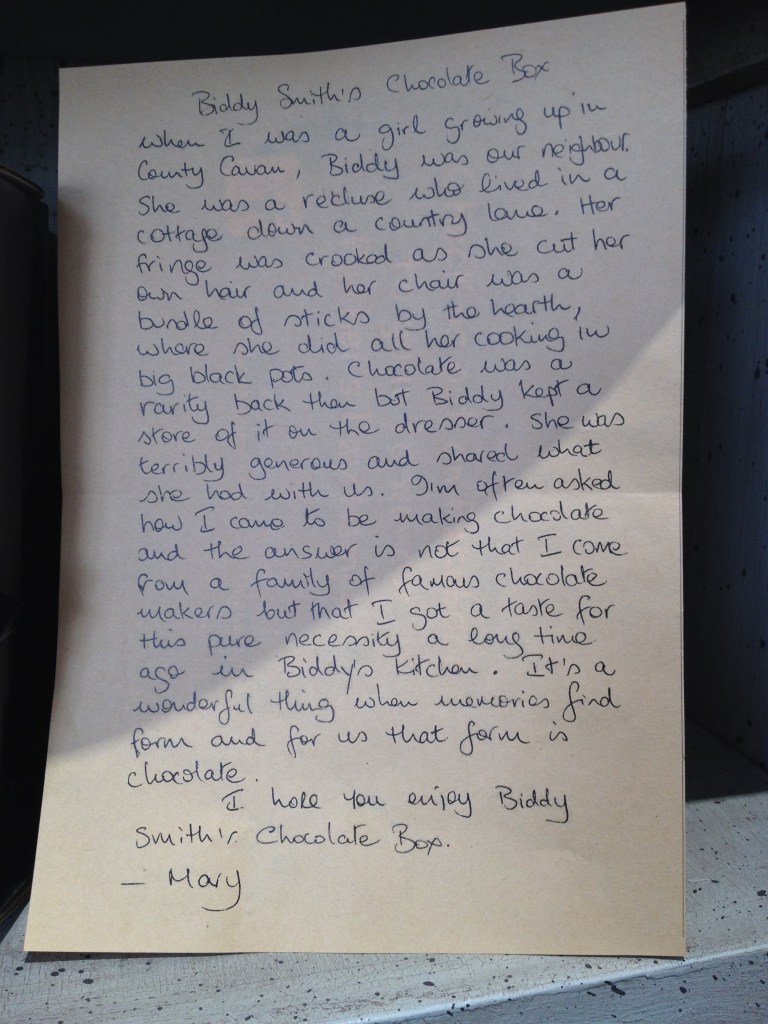 Biddy Smith's Chocolate Box
When I was a girl growing up in
County Cavan, Biddy was our neighbour.
She was a recluse who lived in a
cottage down a country lane. Her
fringe was crooked as she cut her
own hair and her chair was a
bundle of sticks by the hearth,
where she did all her cooking in
big black pots. Chocolate was a
rarity back then but Biddy kept a
store of it on the dresser. She was
terribly generous and shared what
she had with us. I'm often asked
how I came to be making chocolate
and the answer is not that I come
from a family of famous chocolate
makers but that I got a taste for
this pure necessity a long time
ago in Biddy's kitchen. It's a
wonderful thing when memories find
form and for us that form is
chocolate.
I hope you enjoy Biddy
Smith's Chocolate Box.
— Mary